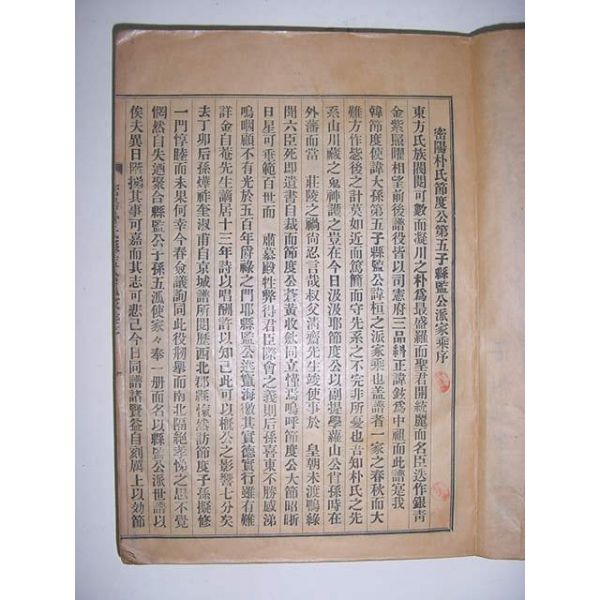 密陽朴氏節度公第五子縣監公派家乘序
東方氏族閥閱可數而凝川之朴爲最盛羅而聖君開統麗而名臣迭作銀靑
金紫照曜相望前後譜役皆以司憲府三品糾正諱鉉爲中祖而此譜寔我
韓節度使諱大孫第五子縣監公諱桓之派家乘也蓋譜者一家之春秋而大
難方作毖後之計莫如近而篤簡而守先系之不完非所憂也吾知朴氏之先
系山川藏之鬼神護之豈在今日汲汲耶節度公以副提學蘿山公胄孫時在
外藩而當 莊陵之禍尙忍言哉叔父淸齋先生竣使事於 皇朝未渡鴨綠
聞六臣死卽遺書自裁而節度公蒼黃收斂同立慬焉嗚呼節度公大節昭晣
日星可垂範百世而 肅墓殿牲幣得君臣際會之義則后孫喜東不勝感涕
嗚咽顧不有光於五百年爵祿之門耶縣監公遯竄海徼其實德實行雖有難
詳金自菴先生謫居十三年詩以唱酬許以知己此可以槪公之影響七分矣
去丁卯后孫燁祚奎淑甫自京城譜所閱歷西北郡縣愾然訪節度子孫擬修
一門惇睦而未果何幸今春僉議詢同此役刱擧而南北隔絶孝悌之思不覺
惘然自失迺聚台縣監公子孫五濫使家々奉一册而名以縣監公派世譜以
俟夫異日歷擧其事可嘉而其志可悲已今日同譜諸賢益自刻厲上以効節